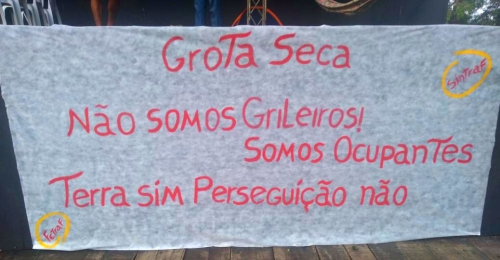 GroTa Seca
SinTraF
Não somos GriLeiros!
Somos OcupanTes
Terra sim Perseguição não